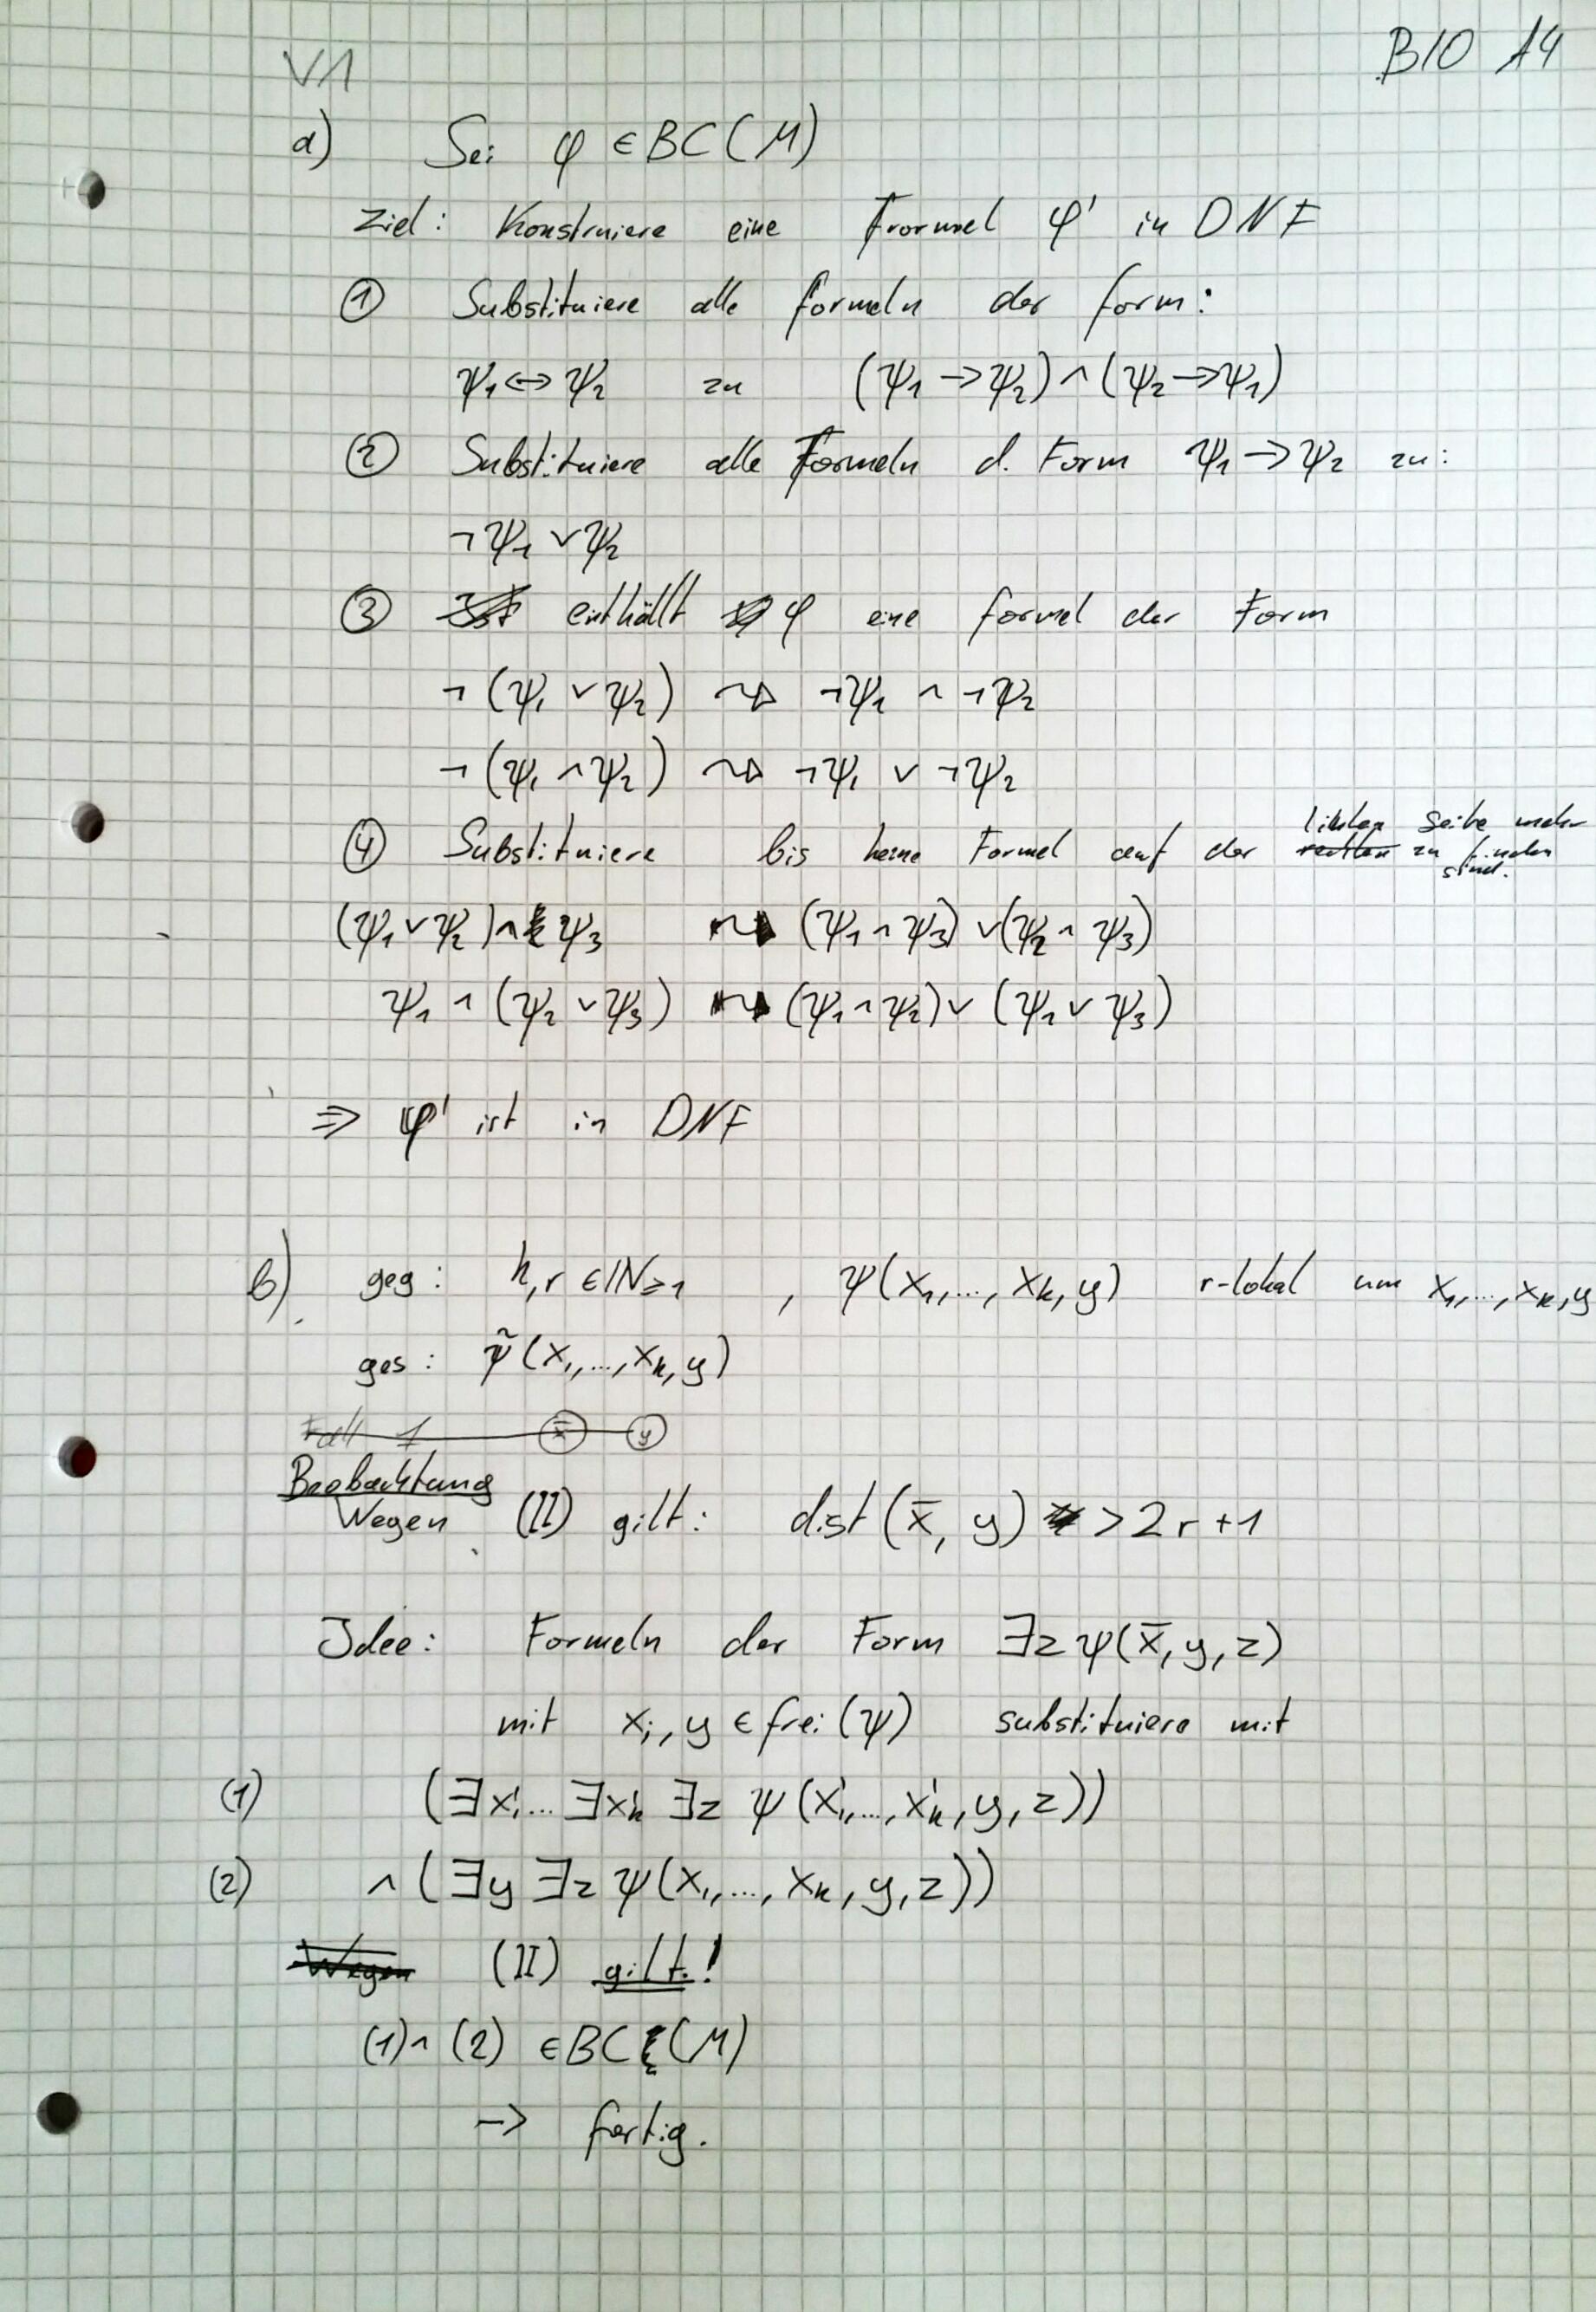 V1
B10 A4
a) Sei φ ∈ BC(M)
Ziel: Konstruiere eine Formel φ' in DNF
① Substituiere alle formeln der form:
ψ₁ ↔ ψ₂ zu (ψ₁ → ψ₂) ∧ (ψ₂ → ψ₁)
② Substituiere alle Formeln d. Form ψ₁ → ψ₂ zu:
¬ψ₁ ∨ ψ₂
③ enthällt φ eine formel der Form
¬(ψ₁ ∨ ψ₂) ⇝ ¬ψ₁ ∧ ¬ψ₂
¬(ψ₁ ∧ ψ₂) ⇝ ¬ψ₁ ∨ ¬ψ₂
④ Substituiere bis keine Formel auf der linken Seite mehr zu finden sind.
(ψ₁ ∨ ψ₂) ∧ ψ₃ ⇝ (ψ₁ ∧ ψ₃) ∨ (ψ₂ ∧ ψ₃)
ψ₁ ∧ (ψ₂ ∨ ψ₃) ⇝ (ψ₁ ∧ ψ₂) ∨ (ψ₁ ∨ ψ₃)
⇒ φ' ist in DNF
b) geg: k, r ∈ ℕ≥1 , ψ(x₁,..., xₖ, y) r-lokal um x₁,..., xₖ, y
ges: ψ̃(x₁,..., xₖ, y)
Fall 1 x̄ y
Beobachtung
Wegen (II) gilt: dist(x̄, y) > 2r+1
Idee: Formeln der Form ∃z ψ(x̄, y, z)
mit xᵢ, y ∈ frei(ψ) substituiere mit
(1) (∃x'₁... ∃x'ₖ ∃z ψ(x'₁,..., x'ₖ, y, z))
(2) ∧ (∃y ∃z ψ(x₁,..., xₖ, y, z))
Wegen (II) gilt!
(1) ∧ (2) ∈ BC(M)
→ fertig.